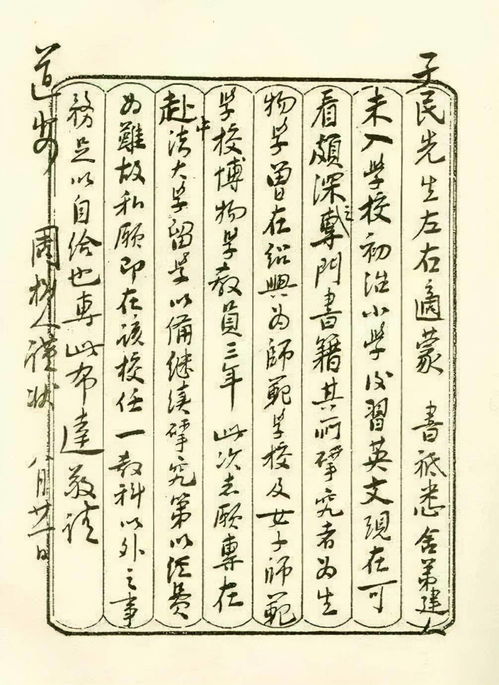 孑民先生左右適蒙　書祗悉舍弟建人
未入学校初治小学後習英文現在可
看頗深之專門書籍其所硏究者為生
物学曽在紹興為師範学校及女子師範
学校博物学教員三年　此次志願專在
赴中法大学留学以備継续硏究第以経费
为難故私願即在該校任一教科以外之事
務足以自给也專此布達敬請
道安　周樹人謹状　八月廿一日